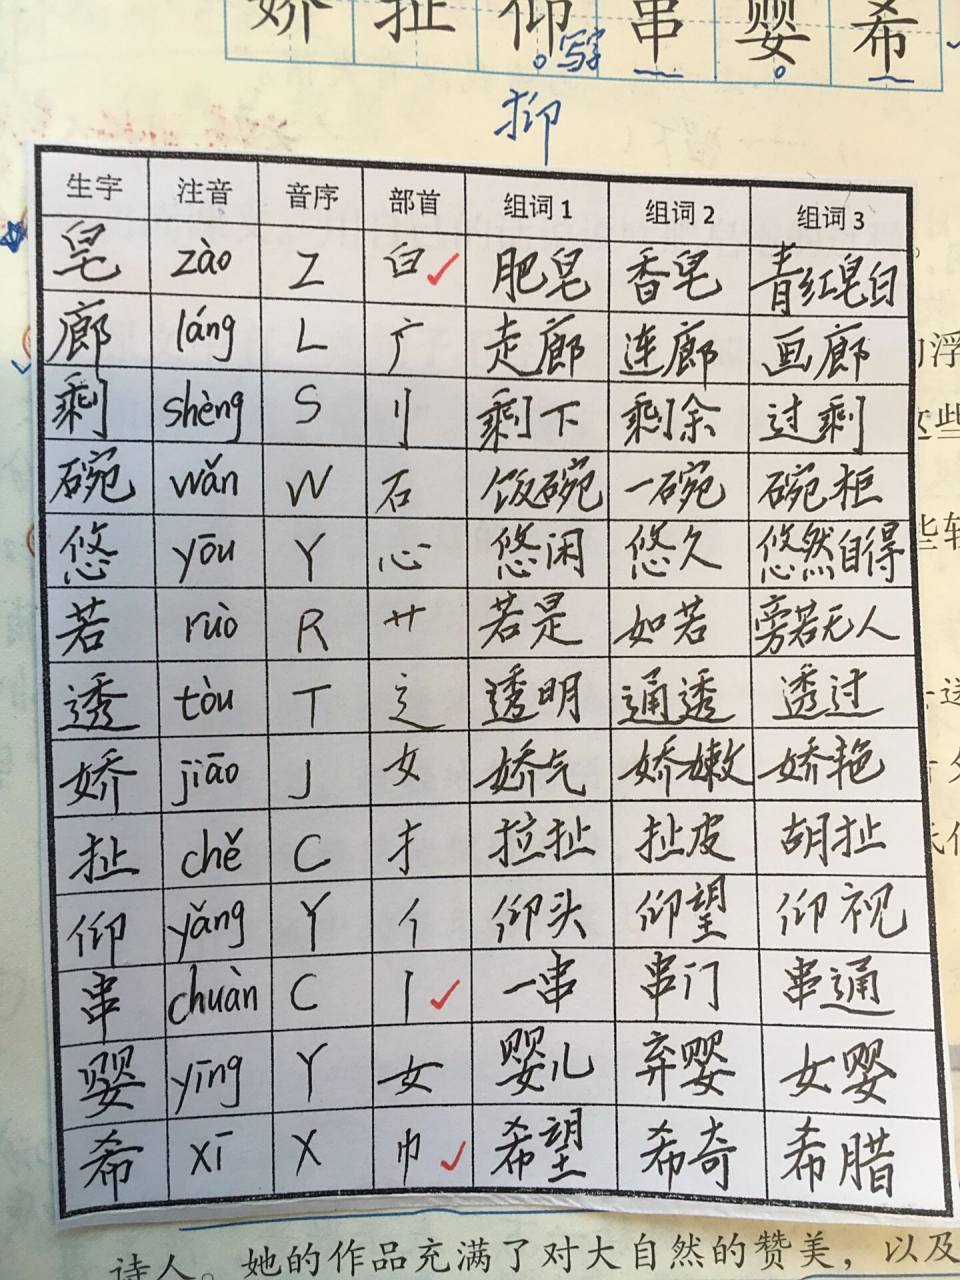 娇 扯 仰 串 婴 希
写字
抑
生字 注音 音序 部首 组词1 组词2 组词3
皂 zào Z 白 肥皂 香皂 青红皂白
廊 láng L 广 走廊 连廊 画廊
剩 shèng S 刂 剩下 剩余 过剩
碗 wǎn W 石 饭碗 一碗 碗柜
悠 yōu Y 心 悠闲 悠久 悠然自得
若 ruò R 艹 若是 如若 旁若无人
透 tòu T 辶 透明 通透 透过
娇 jiāo J 女 娇气 娇嫩 娇艳
扯 chě C 扌 拉扯 扯皮 胡扯
仰 yǎng Y 亻 仰头 仰望 仰视
串 chuàn C 丨 一串 串门 串通
婴 yīng Y 女 婴儿 弃婴 女婴
希 xī X 巾 希望 希奇 希腊
诗人。她的作品充满了对大自然的赞美，以及